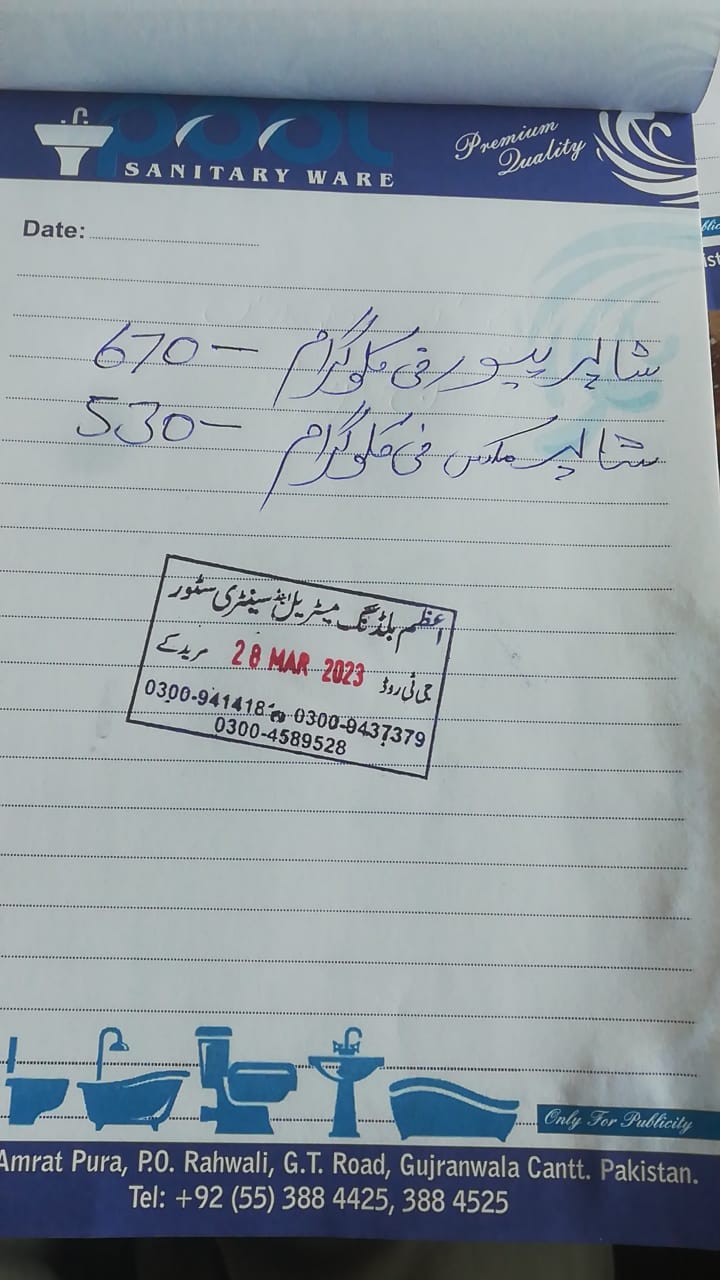 pool
SANITARY WARE
Premium
Quality
Date:
شاپر پیور فی کلوگرام — 670
شاپر مکس فی کلوگرام — 530
اعظم بلڈنگ میٹریل اینڈ سینٹری سٹور
جی ٹی روڈ 28 MAR 2023 مریدکے
0300-9414181 ☎ 0300-9437379
0300-4589528
Only For Publicity
Amrat Pura, P.O. Rahwali, G.T. Road, Gujranwala Cantt. Pakistan.
Tel: +92 (55) 388 4425, 388 4525